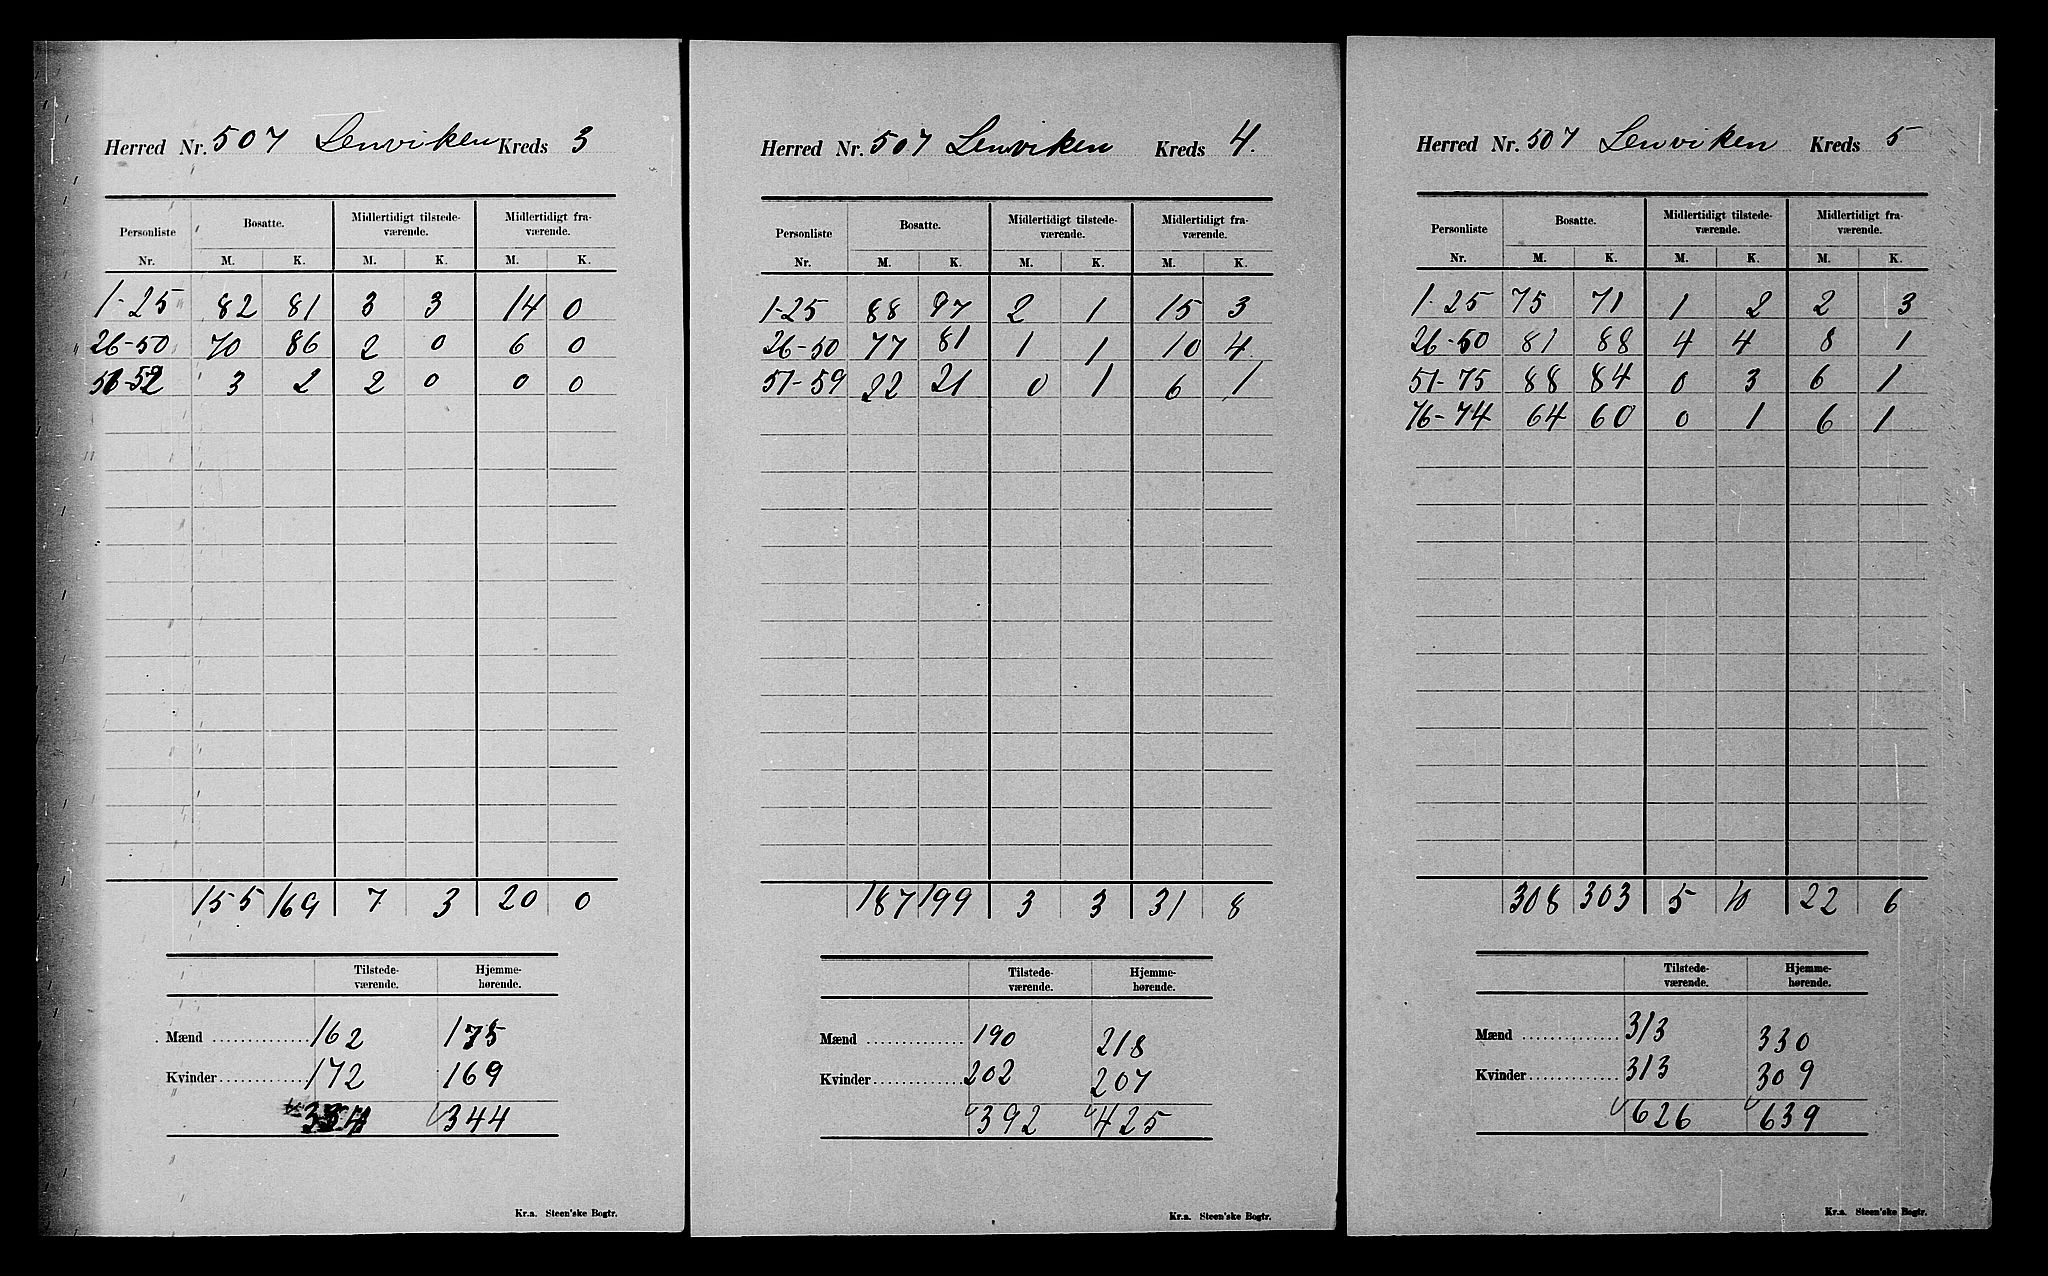 Herred Nr. 507 Lenviken Kreds 3
Personliste Bosatte. Midlertidigt tilstede- Midlertidigt fra-
værende. værende.
Nr. M. K. M. K. M. K.
1-25 82 81 3 3 14 0
26-50 70 86 2 0 6 0
51-52 3 2 2 0 0 0
155 169 7 3 20 0
Tilstede- Hjemme-
værende. hørende.
Mænd 162 175
Kvinder 172 169
334 344
Kr.a. Steen'ske Bogtr.
Herred Nr. 507 Lenviken Kreds 4.
Personliste Bosatte. Midlertidigt tilstede- Midlertidigt fra-
værende. værende.
Nr. M. K. M. K. M. K.
1-25 88 97 2 1 15 3
26-50 77 81 1 1 10 4
51-59 22 21 0 1 6 1
187 199 3 3 31 8
Tilstede- Hjemme-
værende. hørende.
Mænd 190 218
Kvinder 202 207
392 425
Kr.a. Steen'ske Bogtr.
Herred Nr. 507 Lenviken Kreds 5
Personliste Bosatte. Midlertidigt tilstede- Midlertidigt fra-
værende. værende.
Nr. M. K. M. K. M. K.
1-25 75 71 1 2 2 3
26-50 81 88 4 4 8 1
51-75 88 84 0 3 6 1
76-74 64 60 0 1 6 1
308 303 5 10 22 6
Tilstede- Hjemme-
værende. hørende.
Mænd 313 330
Kvinder 313 309
626 639
Kr.a. Steen'ske Bogtr.